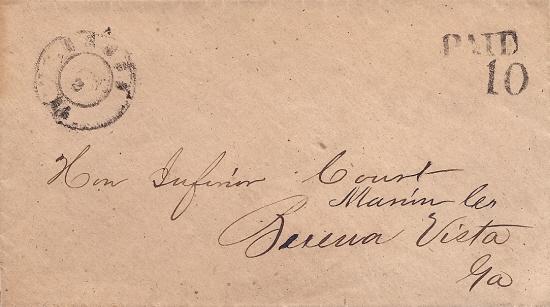 PAID
10
Hon Inferior Court
Marion Co
Buena Vista
Ga